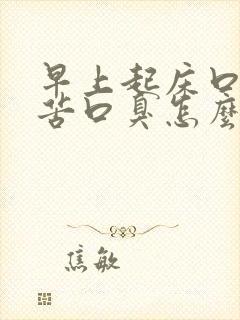 早上起床口
苦口臭怎麼
焦敏